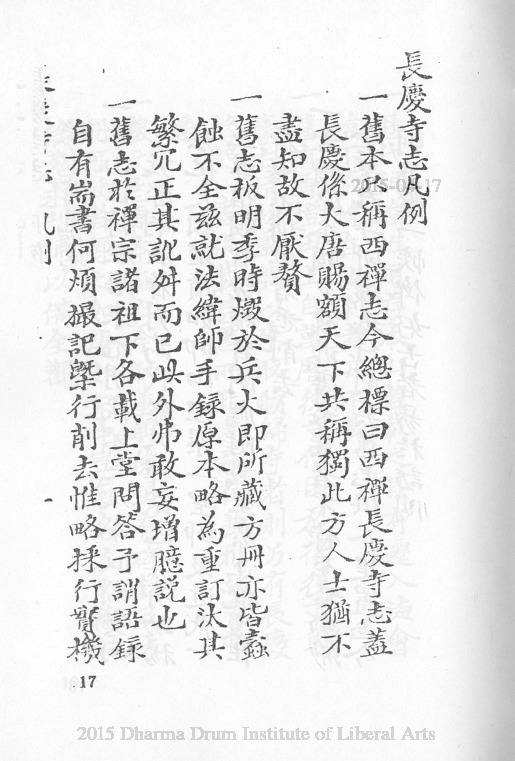 長慶寺志凡例
一舊本只稱西禪志今總標曰西禪長慶寺志蓋
長慶係大唐賜額天下共稱獨此方人士猶不
盡知故不厭贅
一舊志板明季時燬於兵火即所藏方冊亦皆蠹
蝕不全茲就法緯師手錄原本略為重訂汰其
繁冗正其訛舛而已此外弗敢妄增臆說也
一舊志於禪宗諸祖下各載上堂問答予謂語錄
自有耑書何煩撮記槩行削去惟略採行實機
一
17
2015 Dharma Drum Institute of Liberal Arts